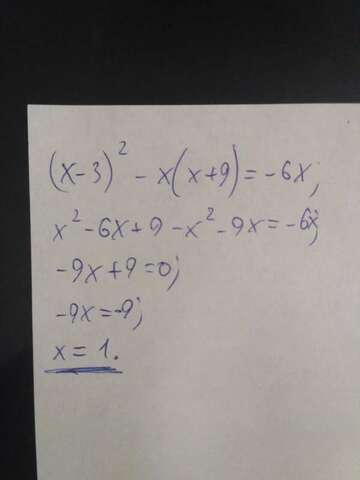 (x-3)² - x(x+9) = -6x;
x² - 6x + 9 - x² - 9x = -6x;
-9x + 9 = 0;
-9x = -9;
x = 1.